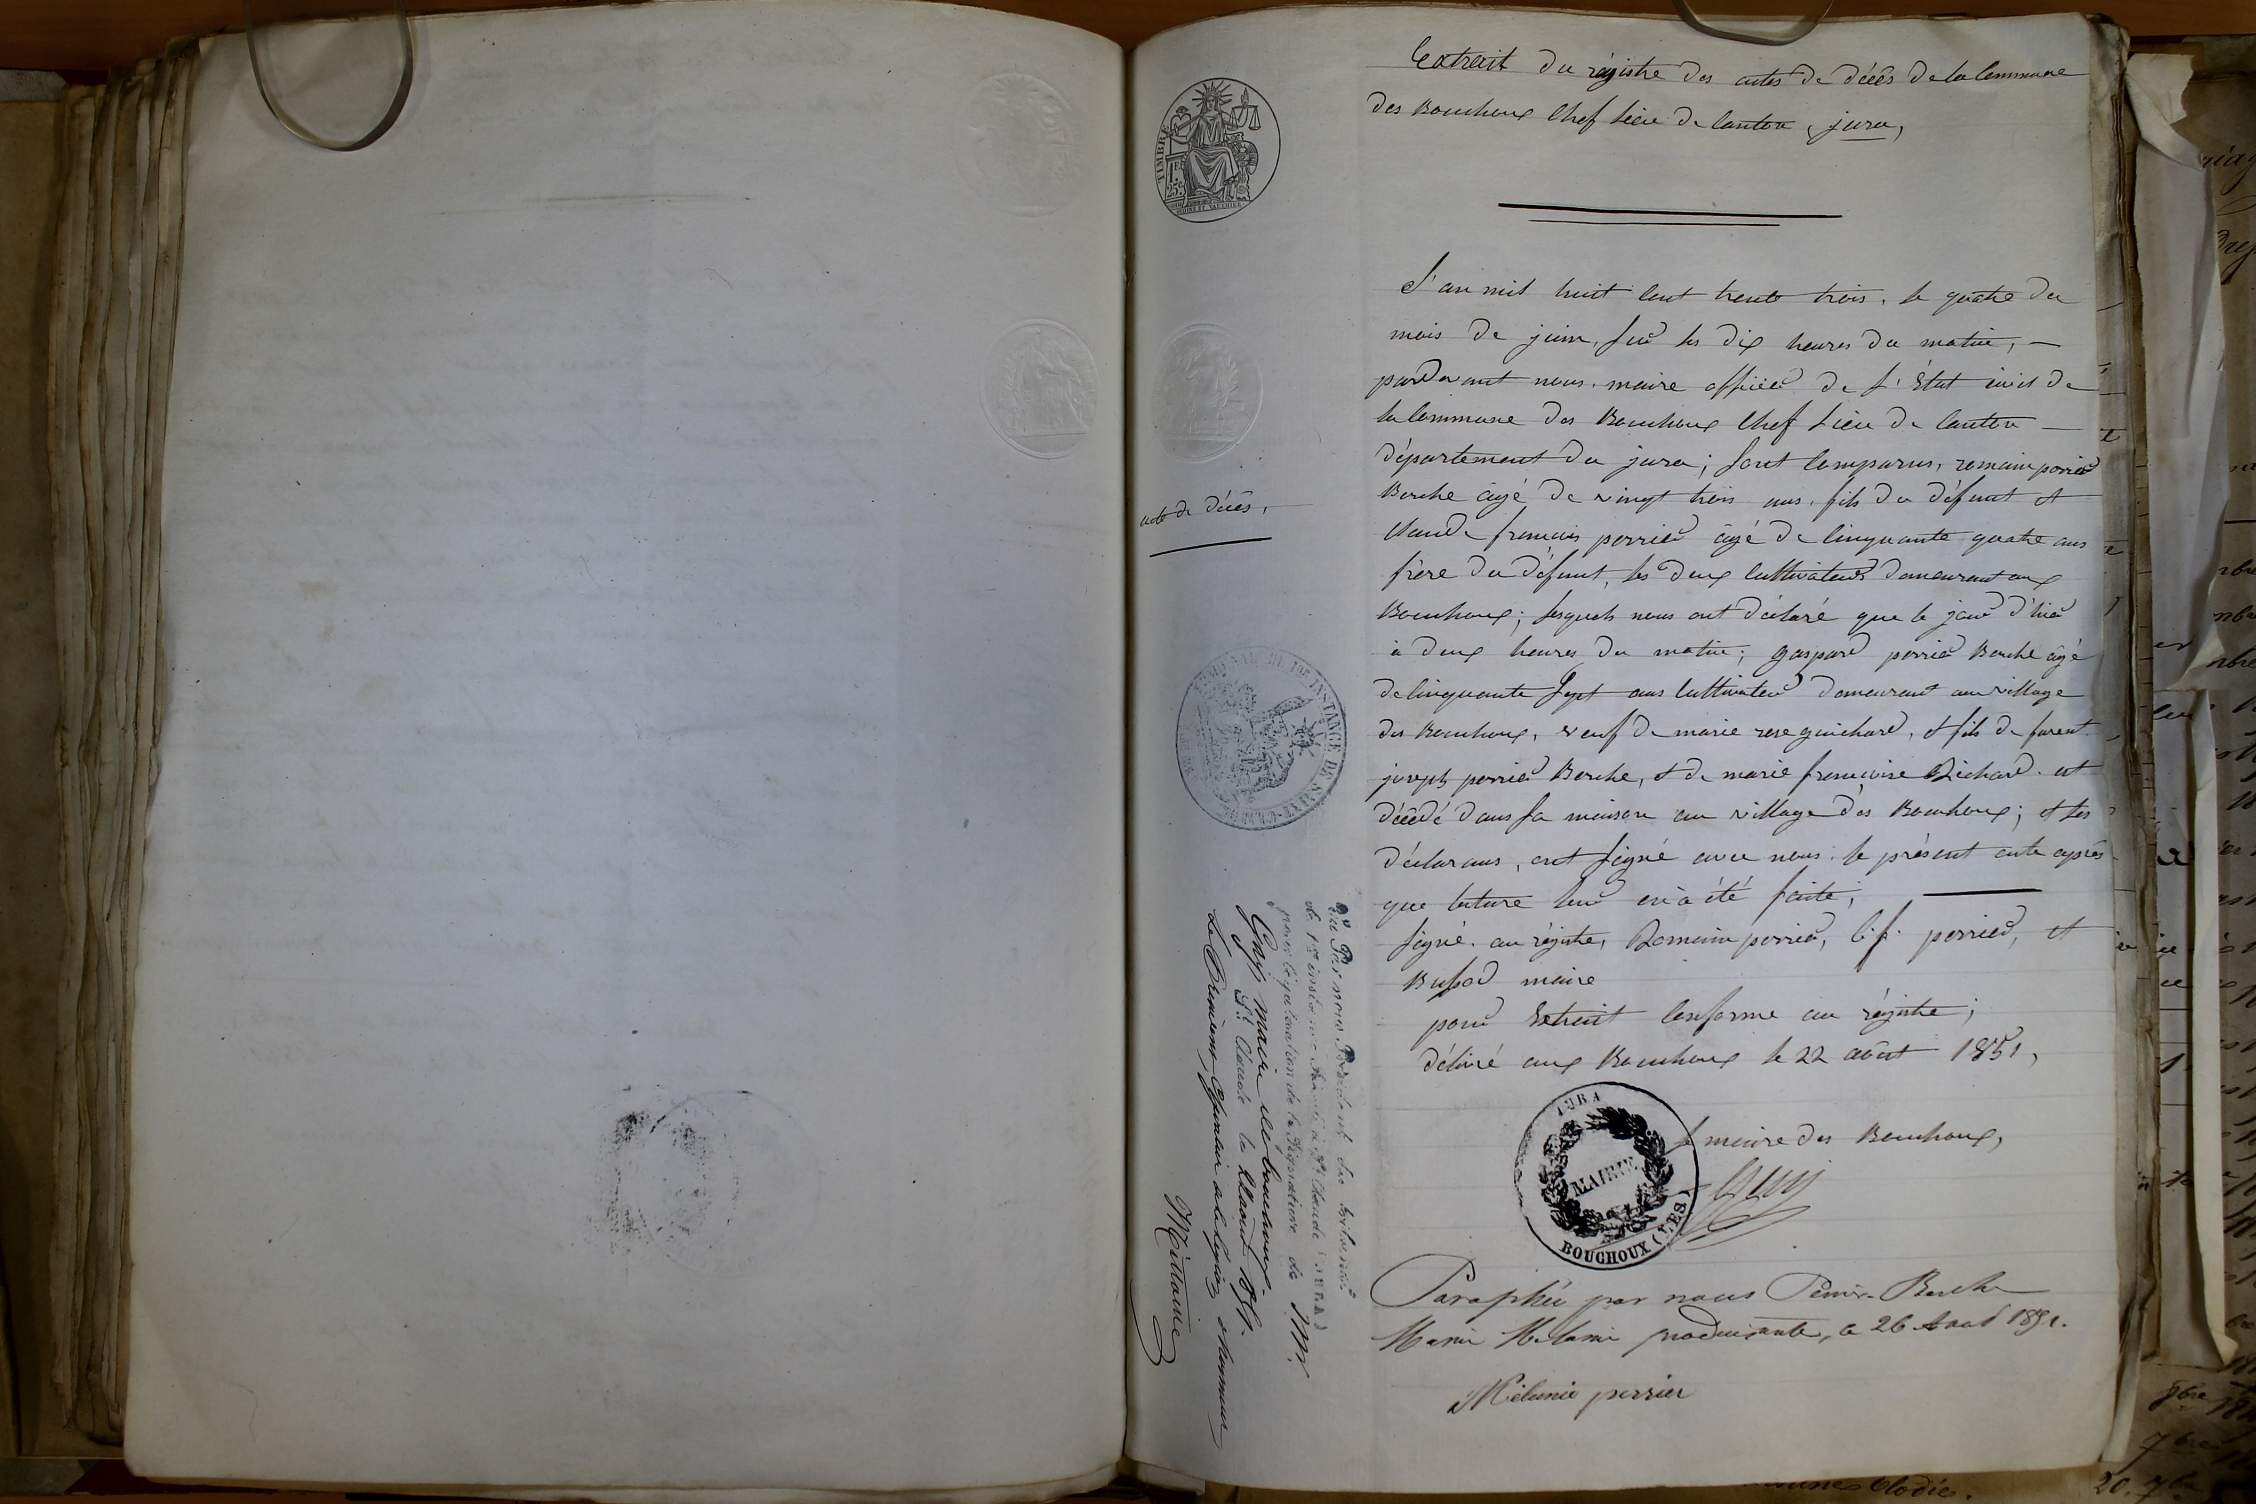 Extrait du régistre des actes de décès de la Commune
des Bouchoux Chef Lieu de Canton, jura,
TIMBRE
acte de décès,
L'an mil huit cent trente trois, le quatre du
mois de juin, sur les dix heures du matin, —
pardevant nous, maire officier de l'État civil de
la Commune des Bouchoux Chef Lieu de Canton —
département du jura; sont Comparus, romain perrier
Berche âgé de vingt trois ans, fils du défunt et
Claude françois perrier âgé de Cinquante quatre ans
frère du défunt, les deux Cultivateurs demeurant aux
Bouchoux; lesquels nous ont déclaré que le jour d'hier
à deux heures du matin; gaspard perrier Berche âgé
de Cinquante Sept ans Cultivateur demeurant au village
des Bouchoux, veuf de marie rose guichard, et fils de furent
joseph perrier Berche, et de marie françoise Richard est
décédé dans sa maison au village des Bouchoux; et les
déclarans, ont Signé avec nous le présent acte après
que lecture leur en a été faite;
signé au régistre, Romain perrier, C. f. perrier, et
maire
pour Extrait Conforme au régistre;
délivré aux Bouchoux le 22 août 1851,
Le maire des Bouchoux,
JURA
MAIRIE
BOUCHOUX (LES)
Paraphée par nous Perrier-Berche
Marie Mélanie produisante, ce 26 Aout 1851.
Mélanie perrier
Vu Par nous Président du tribunal
de 1re instance séant à St Claude (JURA)
pour légalisation de la Signature de Mr.
maire des bouchoux.
St Claude le août 1851.
INSTANCE DE SAINT-CLAUDE